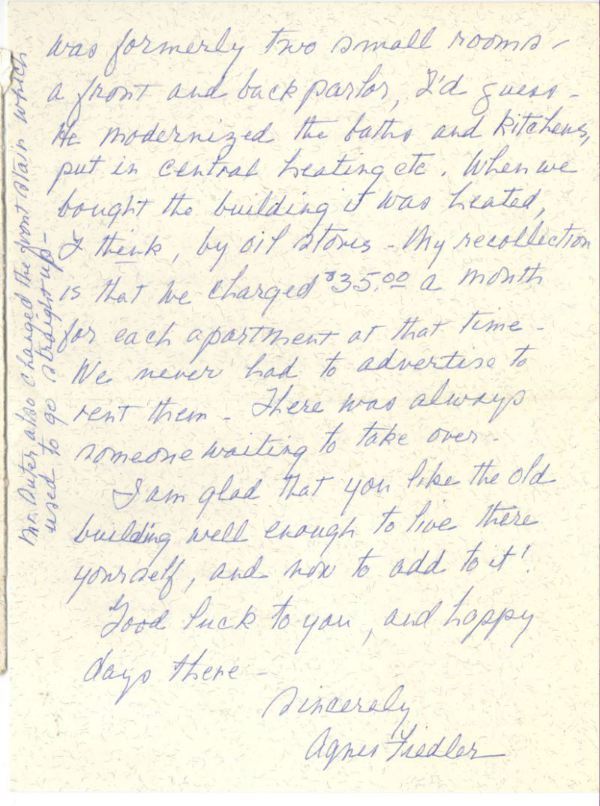 was formerly two small rooms -
a front and back parlor, I'd guess -
He modernized the baths and kitchens,
put in central heating etc. When we
bought the building it was heated,
I think, by oil stoves - My recollection
is that we charged $35.00 a month
for each apartment at that time -
We never had to advertise to
rent them - There was always
someone waiting to take over -
I am glad that you like the old
building well enough to live there
yourself, and now to add to it!
Good luck to you, and happy
days there -
Sincerely
Agnes Fiedler
Mr. also changed the front stair which
used to go straight up -